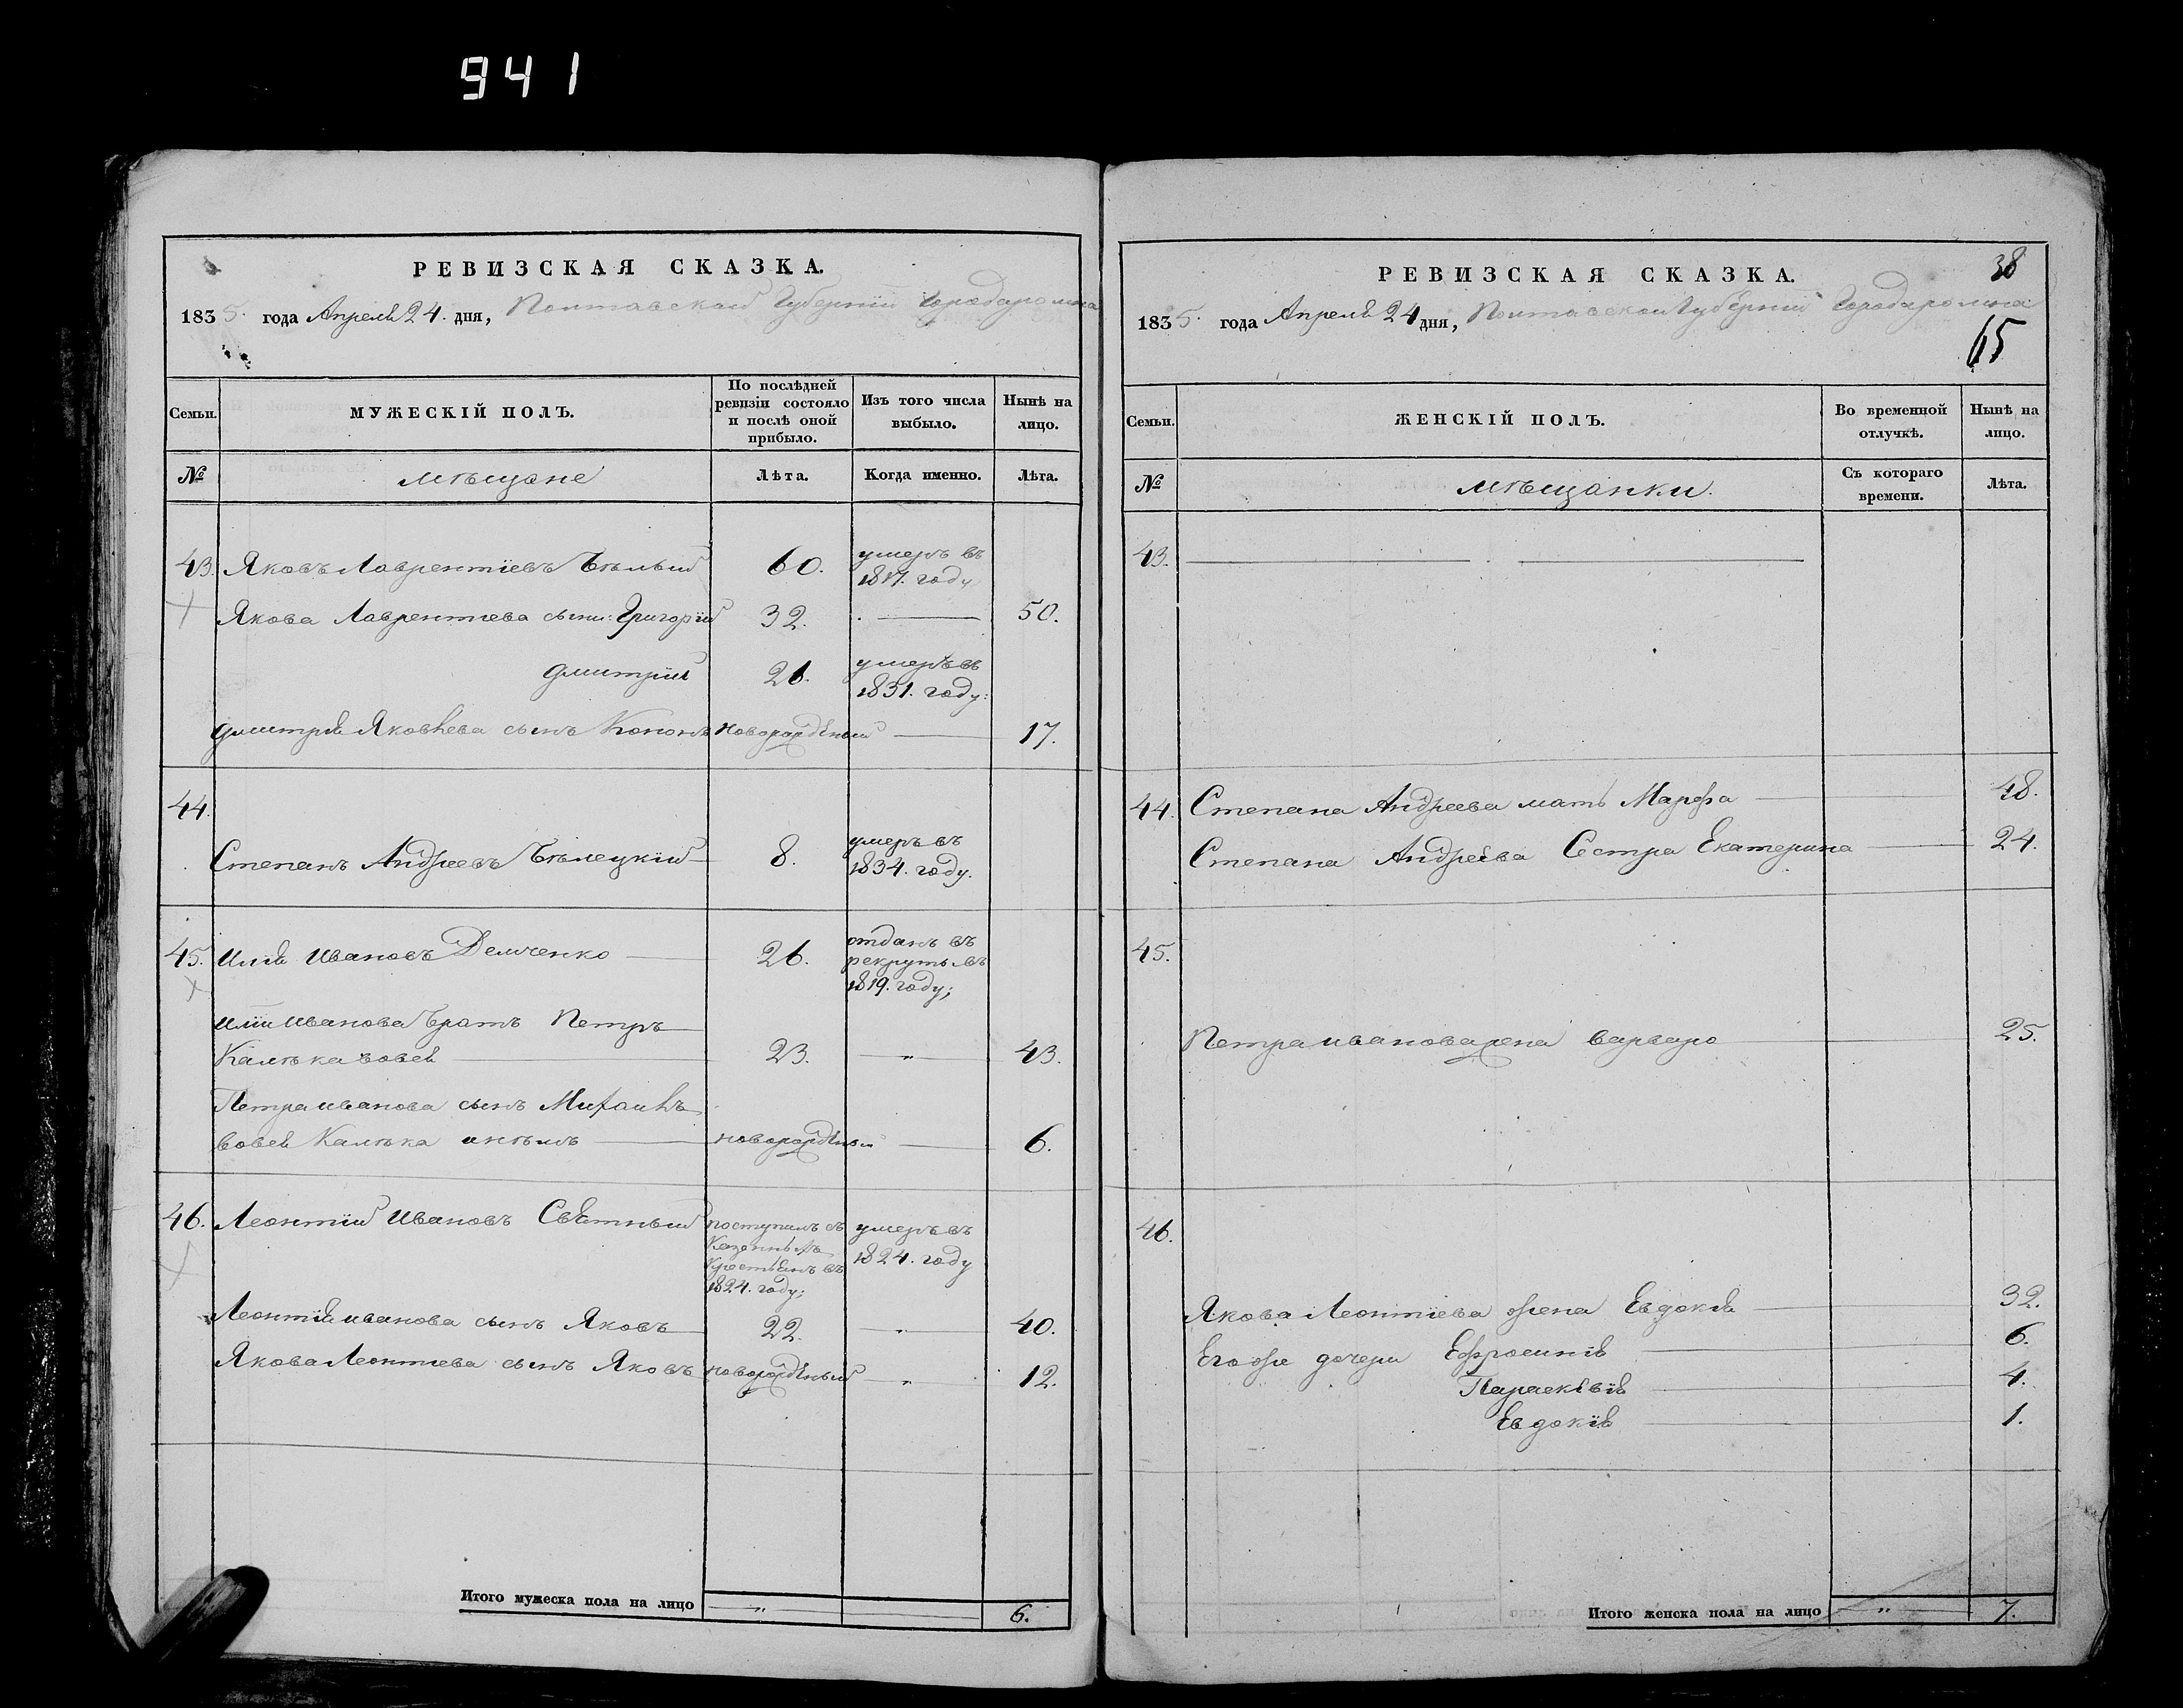 941
РЕВИЗСКАЯ СКАЗКА.
1835. года Апреля 24. дня, Полтавской Губернии Города
МУЖЕСКІЙ ПОЛЪ.
Семьи.
По послѣдней ревизіи состояло и послѣ оной прибыло.
Изъ того числа выбыло.
Нынѣ на лицо.
№ мѣщане Лѣта. Когда именно. Лѣта.
43. Яковъ Лаврентіевъ Бѣлый 60. умеръ въ
1817. году
Якова Лаврентиева сыны: Григорій 32. 50.
Дмитрій 26. умеръ въ
1831. году:
Дмитрія Яковлева сынъ Кононъ новорожденый 17.
44.
Степанъ Андреевъ Бѣлецкій 8. умеръ въ
1834. году.
45. Илія Ивановъ Демченко 26. отданъ въ
рекруты въ
1819. году;
Иліи Иванова братъ Петръ
Калѣка 23. " 43.
Петра иванова сынъ Михаилъ
Калѣка новорожденый 6.
46. Леонтій Ивановъ поступилъ съ умеръ въ
Казенныхъ 1824. году
Крестьянъ въ
1824. году;
Леонтія иванова сынъ Яковъ 22. " 40.
Якова Леонтиева сынъ Яковъ новорожденый " 12.
Итого мужеска пола на лицо " 6.
РЕВИЗСКАЯ СКАЗКА. 38
1835. года Апреля 24 дня, Полтавской Губернии Города
65
Семьи.
ЖЕНСКІЙ ПОЛЪ.
Во временной отлучкѣ.
Нынѣ на лицо.
№ мѣщанки. Съ котораго времени. Лѣта.
43.
44. Степана Андреева мать Марфа 48.
Степана Андреева Сестра Екатерина 24.
45.
Петра иванова жена варвара 25.
46.
Якова Леонтіева жена Евдокія 32.
Его же дочери Ефросинія 6.
Параскевія 4.
Евдокія 1.
Итого женска пола на лицо " 7.